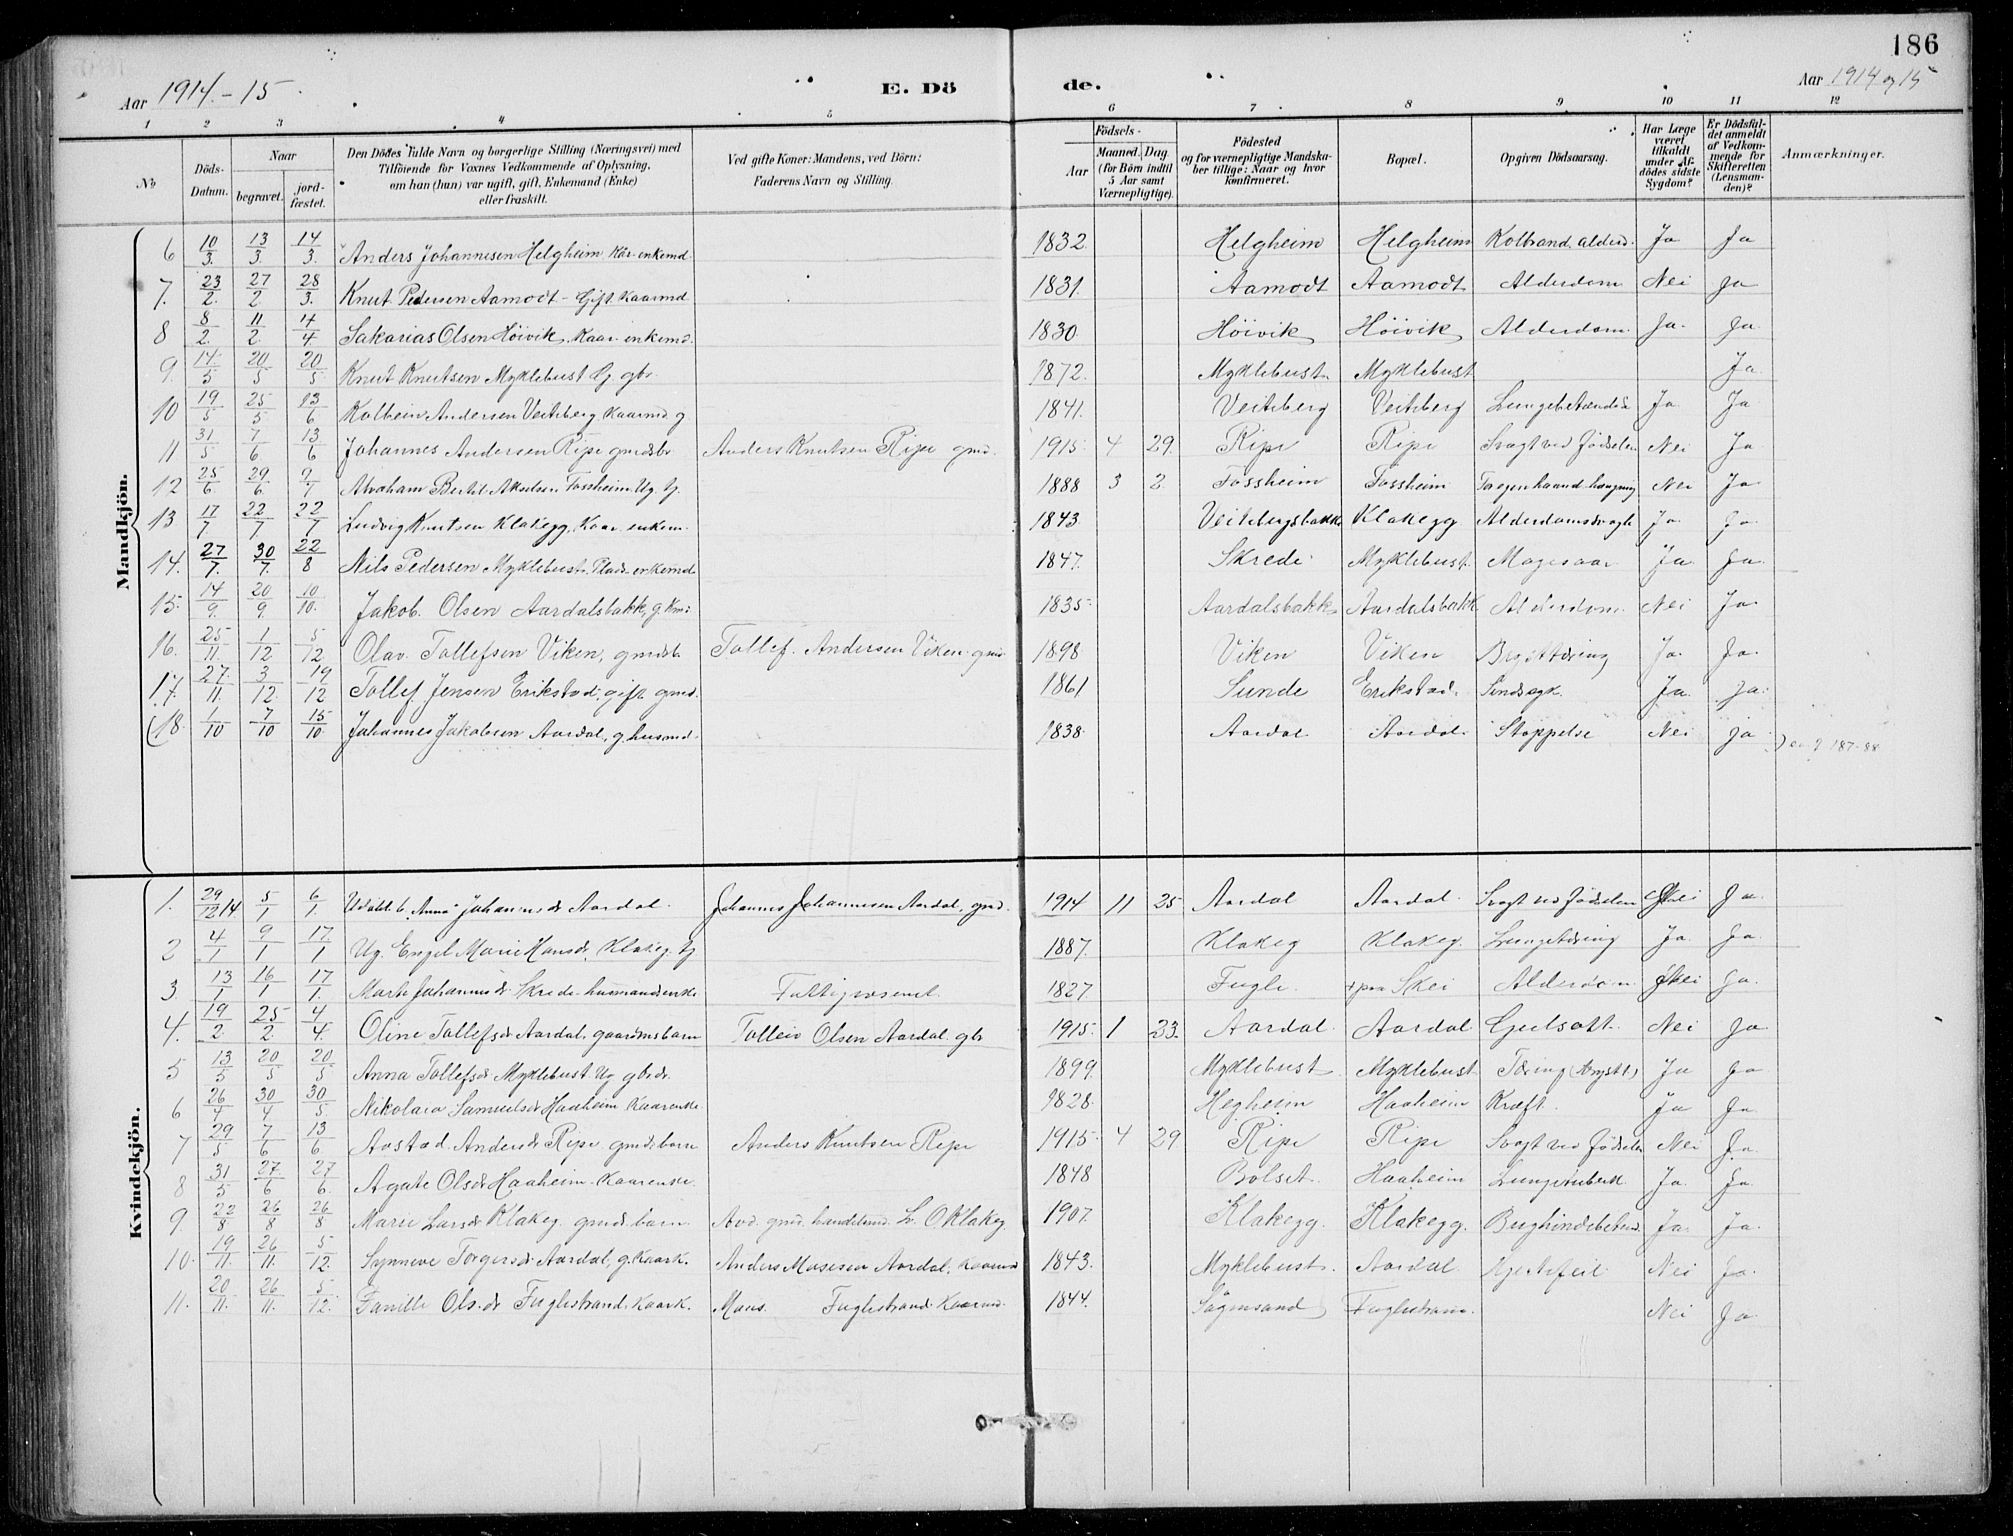 186
Aar 1914.-15
E. Dö
de.
Aar 1914 og 15
1 2 3 4 5 6 7 8 9 10 11 12
No
Döds-Datum.
Naar
begravet.
jord-fæstet.
Den Dödes fulde Navn og borgerlige Stilling (Næringsvei) med Tilföiende for Voxnes Vedkommende af Oplysning, om han (hun) var ugift, gift, Enkemand (Enke) eller fraskilt.
Ved gifte Koner: Mandens, ved Börn: Faderens Navn og Stilling.
Födsels-
Aar
Maaned. Dag. (for Börn indtil 5 Aar samt Værnepligtige).
Födested og for værnepligtige Mandska-ber tillige: Naar og hvor konfirmeret.
Bopæl.
Opgiven Dödsaarsag.
Har Læge været tilkaldt under Af-dödes sidste Sygdom?
Er Dödsfal-det anmeldt af Vedkom-mende for Skifteretten (Lensman-den)?
Anmærkninger.
Mandkjön.
6 10/3. 13/3. 14/3. Anders Johannesen Helgheim Kår-enkemd. 1832. Helgheim Helgheim Kolbrand, alderd. Ja Ja
7. 23/2. 27/2. 28/3. Knut Pedersen Aamodt - Gift Kaarmd 1831. Aamodt Aamodt Alderdom Nei Ja
8 8/2. 11/2. 4/4 Sakarias Olsen Höivik. Kaar-enkemd. 1830 Höivik Höivik Alderdom Ja. Ja.
9. 14./5 20/5 20/5. Knut Knutsen Myklebust G. gbr. 1872. Myklebust Myklebust Ja
10 19/5 25/5 13/6 Kolbein Andersen Veiteberg Kaarmd g 1841. Veiteberg Veiteberg Lungebetændelse Ja. Ja.
11 31/5 7/6. 13/6 Johannes Andersen Ripe gmdsbr. Anders Knutsen Ripe gmd. 1915 4 29. Ripe Ripe Svagt ved Födselen Nei Ja
12 25/6 29/6. 9/7 Abraham Bertil Akselsen Fossheim Ug. tj. 1888 3 2 Fossheim Fossheim Nei Ja
13 17/7 22/7 22/7 Ludvig Knutsen Klakegg, Kaar enkem. 1843 Veitebergsbakke Klakegg Ja Ja.
14. 27/7. 30/7. 22/8 Nils Pedersen Myklebust. Plads-enkemd 1847. Skrede Myklebust. Mavesaar Ja. Ja.
15. 14/9. 20/9 10/10. Jakob. Olsen Aardalsbakk, g. 1835 Aardalsbakk Aardalsbakk Alderdom Nei Ja.
16. 25/11. 1/12 5/12 Olav Tollefsen Viken, gmdsb. Tollef. Andersen Viken gmd. 1898 Viken Viken Brysttæring Ja. Ja.
17. 27./11. 3/12. 19/12 Tollef Jensen Erikstad, gift gmd. 1861 Sunde Erikstad. Sindssyk. Ja. Ja.
(18. 1/10 7/10 15/10. Johannes Jakobsen Aardal, g. husmd. 1838. Aardal Aardal. Stoppelse Nei Ja.
187-88
Kvindekjön.
1. 29/12 14 5/1 6/1. Udöbt b. "Anna" Johannesdr Aardal. Johannes Johannesen Aardal, gmd. 1914 11 25 Aardal Aardal. Svagt ved Födselen Nei Ja.
2 4/1 9/1 17/1 Ug. Engel Marie Hansdr. Klakeg. tj 1887. Klakeg Klakeg. Lungetæring Ja Ja.
3 13/1 16/1 17/1. Marte Johannesdr Skrede husmandsenke Fattigvæsenet 1827 Fugle. Skei Alderdom Nei Ja.
4. 19/2. 25/2. 4/4. Oline Tollefsdr Aardal, gaardmsbarn Tolleiv Olsen Aardal gbr 1915. 1 23. Aardal. Aardal Gulsott. Nei Ja
5 13/5 20/5 20/5 Anna Tollefsdr Myklebust Ug gbrdr. 1899. Myklebust Myklebust Tæring (bryst) Ja Ja
6 26/4 30/4 30/5 Nikolava Samuelsdr Haaheim Kaarenke 1828. Hegheim Haaheim Kræft Ja Ja.
7 29/5 7/6 13/6 Aastad Andersdr Ripe gmdsbarn Anders Knutsen Ripe 1915. 4 29 Ripe Ripe Svagt ved Födselen Nei Ja.
8 31/5 27/6 27/6. Agate Olsdr Haaheim. Kaarenke. 1848 Bolset. Haaheim Ja. Ja.
9 22/8 26/8 26/8 Marie Larsdr Klakeg. gmds.barn Avd. gmd. handelsmd. L. O Klakeg. 1907. Klakegg. Klakegg. Bughindebetænd. Ja. Ja.
10. 19/11. 26/11. 5/12. Synneve Torgersdr Aardal, g. kaark. Anders Mosesen Aardal, Kaarmd 1843. Myklebust. Aardal. Hjertefeil Nei Ja.
11. 20/11. 26/11. 5/12. Olsdr Fuglestrand. Kaark. Mons. Fuglestrand Kaarmd. 1844. Sögnesand Fuglestrand. Nei Ja.